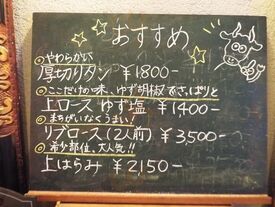 おすすめ
やわらかい
厚切りタン ¥1800-
ここだけの味、ゆず胡椒でさっぱりと
上ロース ゆず塩 ¥1,400-
まちがいなくうまい!
リブロース(2人前) ¥3,500-
希少部位、大人気!!
上はらみ ¥2150-